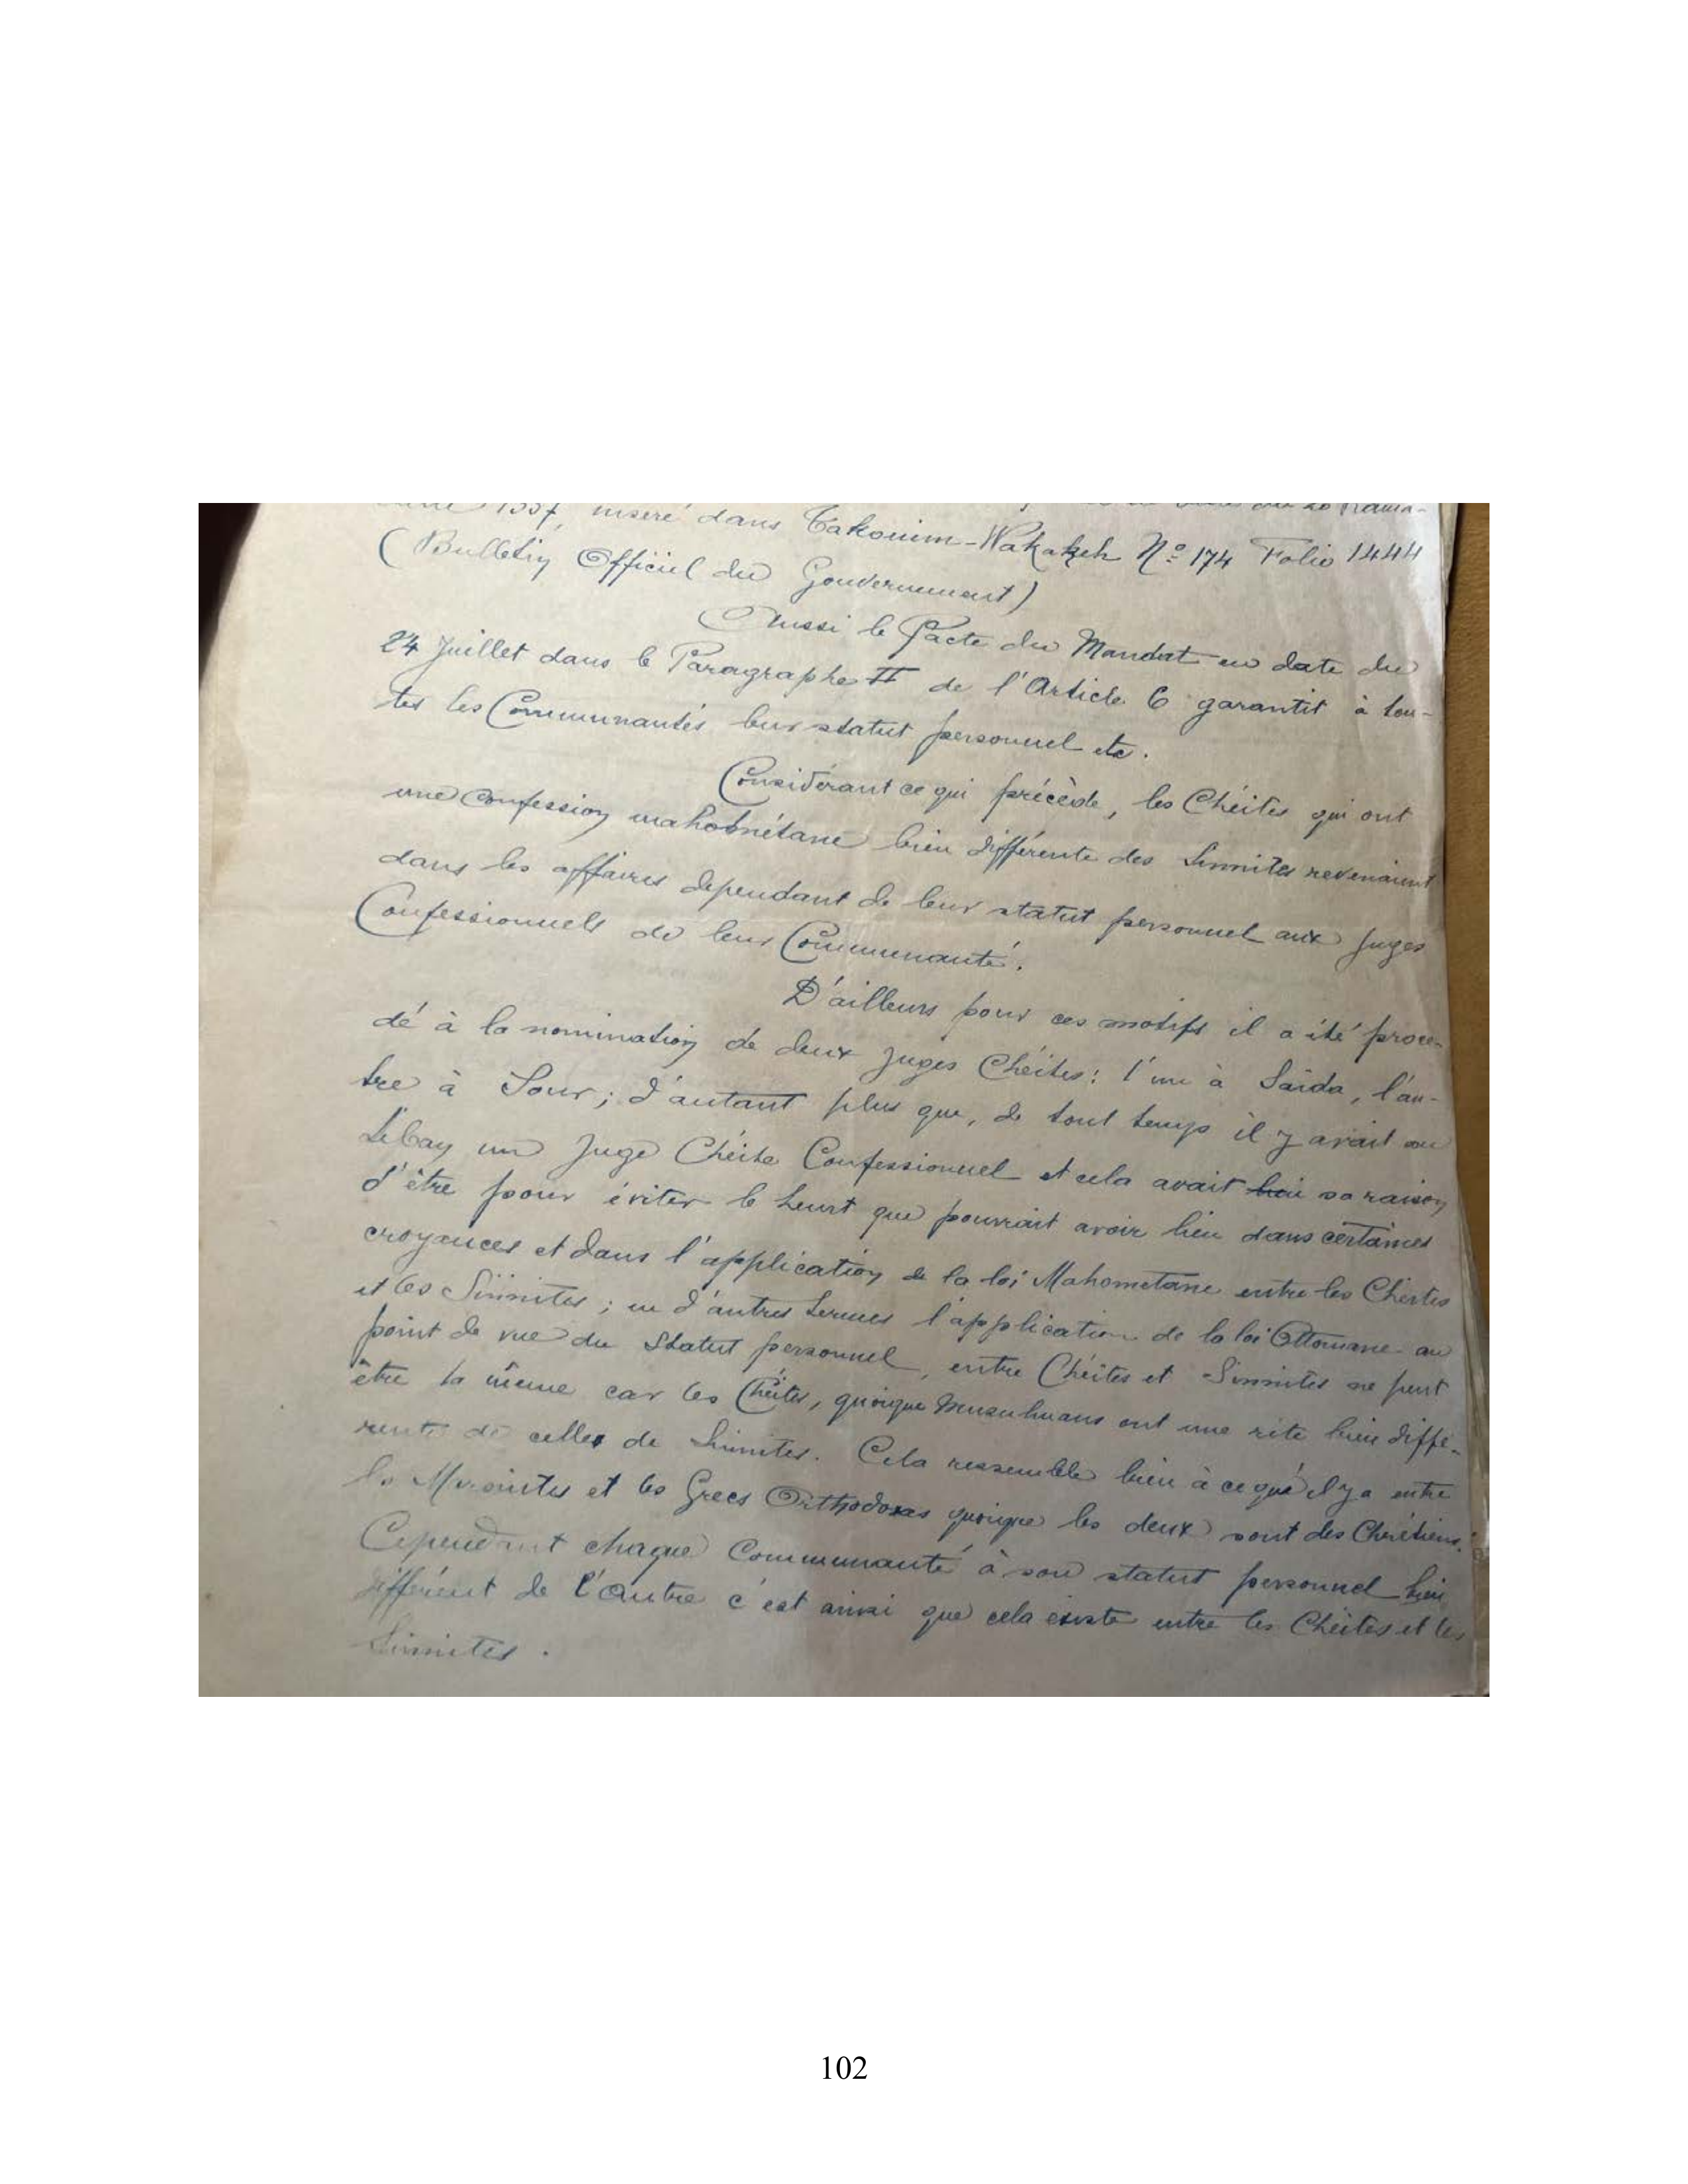 1337, inséré dans Takouim-Wakakeh Nº 174 Folio 1444
(Bulletin Officiel du Gouvernement)
Aussi le Pacte du Mandat en date du
24 Juillet dans le Paragraphe II de l'Article 6 garantit à tou-
tes les Communautés leur statut personnel etc.
Considérant ce qui précède, les Chéites qui ont
une Confession mahométane bien différente des Sunnites revenaient
dans les affaires dependant de leur statut personnel aux Juges
Confessionnels de leur Communauté.
D'ailleurs pour ces motifs il a été procé-
dé à la nomination de deux Juges Chéites: l'un à Saïda, l'au-
tre à Sour; d'autant plus que, de tout temps il y avait au
Liban un Juge Chéite Confessionnel et cela avait sa raison
d'être pour éviter le heurt que pourrait avoir lieu dans certaines
croyances et dans l'application de la loi Mahometane entre les Chéites
et les Sinnites; en d'autres termes l'application de la loi Ottomane au
point de vue du Statut personnel, entre Chéites et Sinnites ne peut
être la même car les Chéites, quoique Musulmans ont une rite bien diffé-
rente de celles de Sinnites. Cela ressemble bien à ce qu'il y a entre
les Maronites et les Grecs Orthodoxes quoique les deux sont des Chrétiens.
Cependant chaque Communauté à son statut personnel bien
différent de l'Autre c'est ainsi que cela existe entre les Chéites et les
Sinnites.
102